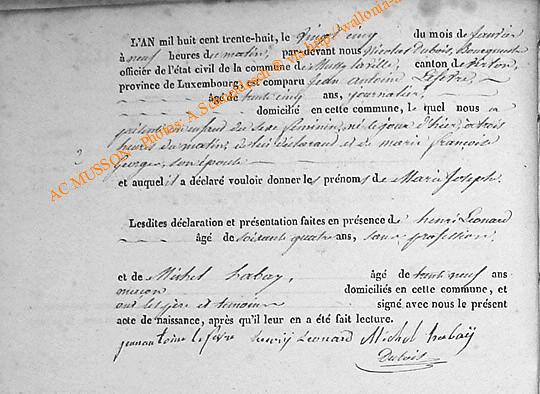 L'AN mil huit cent trente-huit, le vingt cinq du mois de fevrier
à neuf heures du matin, par-devant nous Nicolas Dubois, Bourgmestre
officier de l'état civil de la commune de Mussy la ville, canton de Virton,
province de Luxembourg, est comparu Jean Antoine Lefevre,
âgé de trente cinq ans, journalier,
domicilié en cette commune, le quel nous a
présenté un enfant du sexe feminin, né le jour d'hier, à trois
heures du matin, de lui déclarant et de marie françoise
georges, son épouse
et auquel il a déclaré vouloir donner les prénoms de Marie Joseph.
Lesdites déclaration et présentation faites en présence de henri Léonard
âgé de soixante quatre ans, sans profession,
et de Michel habay, âgé de trente neuf ans
maçon domiciliés en cette commune, et
ont les père et témoins signé avec nous le présent
acte de naissance, après qu'il leur en a été fait lecture.
jean antoine lefevre henrij Leonard Michel habaÿ
Dubois
AC MUSSON - Photos: A.S via http://wallonia